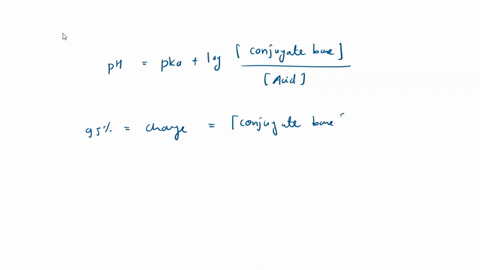 pH = pka + log [conjugate base] / [Acid]
95% = charge = [conjugate base